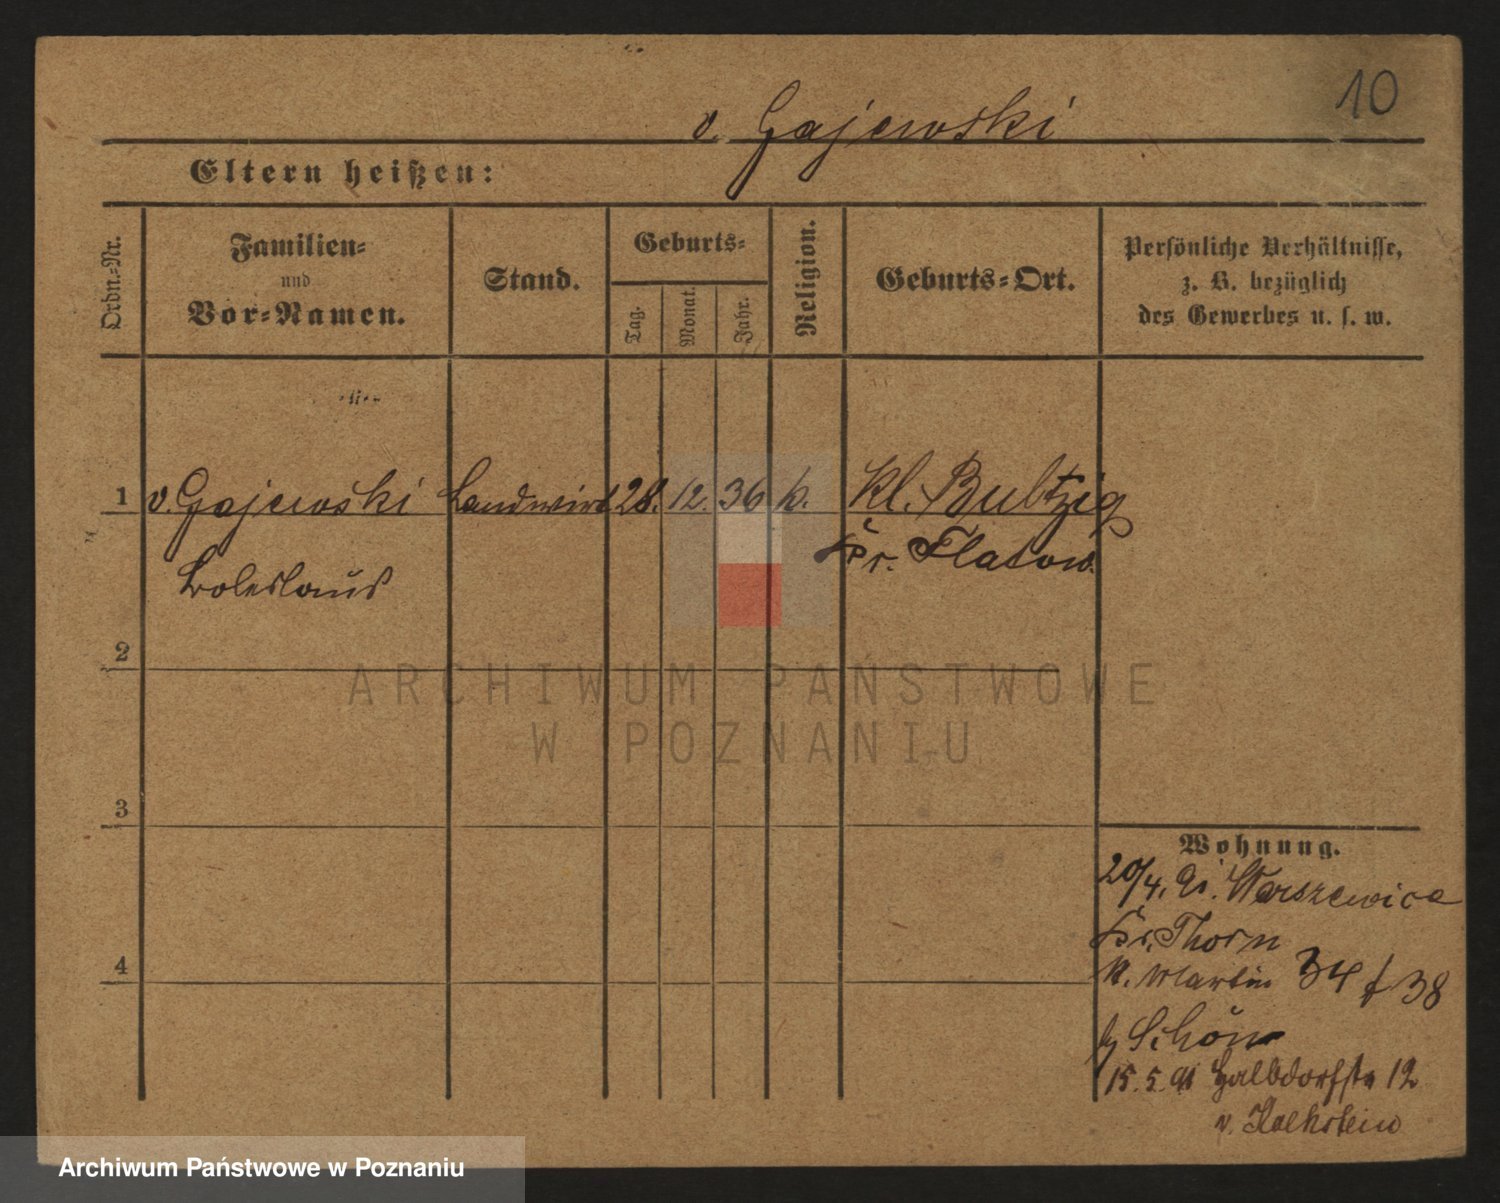 10
v. Gajewski
Eltern heißen:
Ordn.-Nr.
Familien-
und
Vor-Namen.
Stand.
Geburts-
Tag.
Monat.
Jahr.
Religion.
Geburts-Ort.
Persönliche Verhältnisse,
z. B. bezüglich
des Gewerbes u. s. w.
1 v. Gajewski Landwirt 28. 12. 36 k. Kl. Butzig
Kr. Flatow.
Boleslaus
2
3
4
Wohnung.
20/4. 91. Warszewice
Kr. Thorn
St. Martin 34 38
b/ Schön
15. 5. 91 Halbdorfstr 12
v.
ARCHIWUM PAŃSTWOWE
W POZNANIU
Archiwum Państwowe w Poznaniu